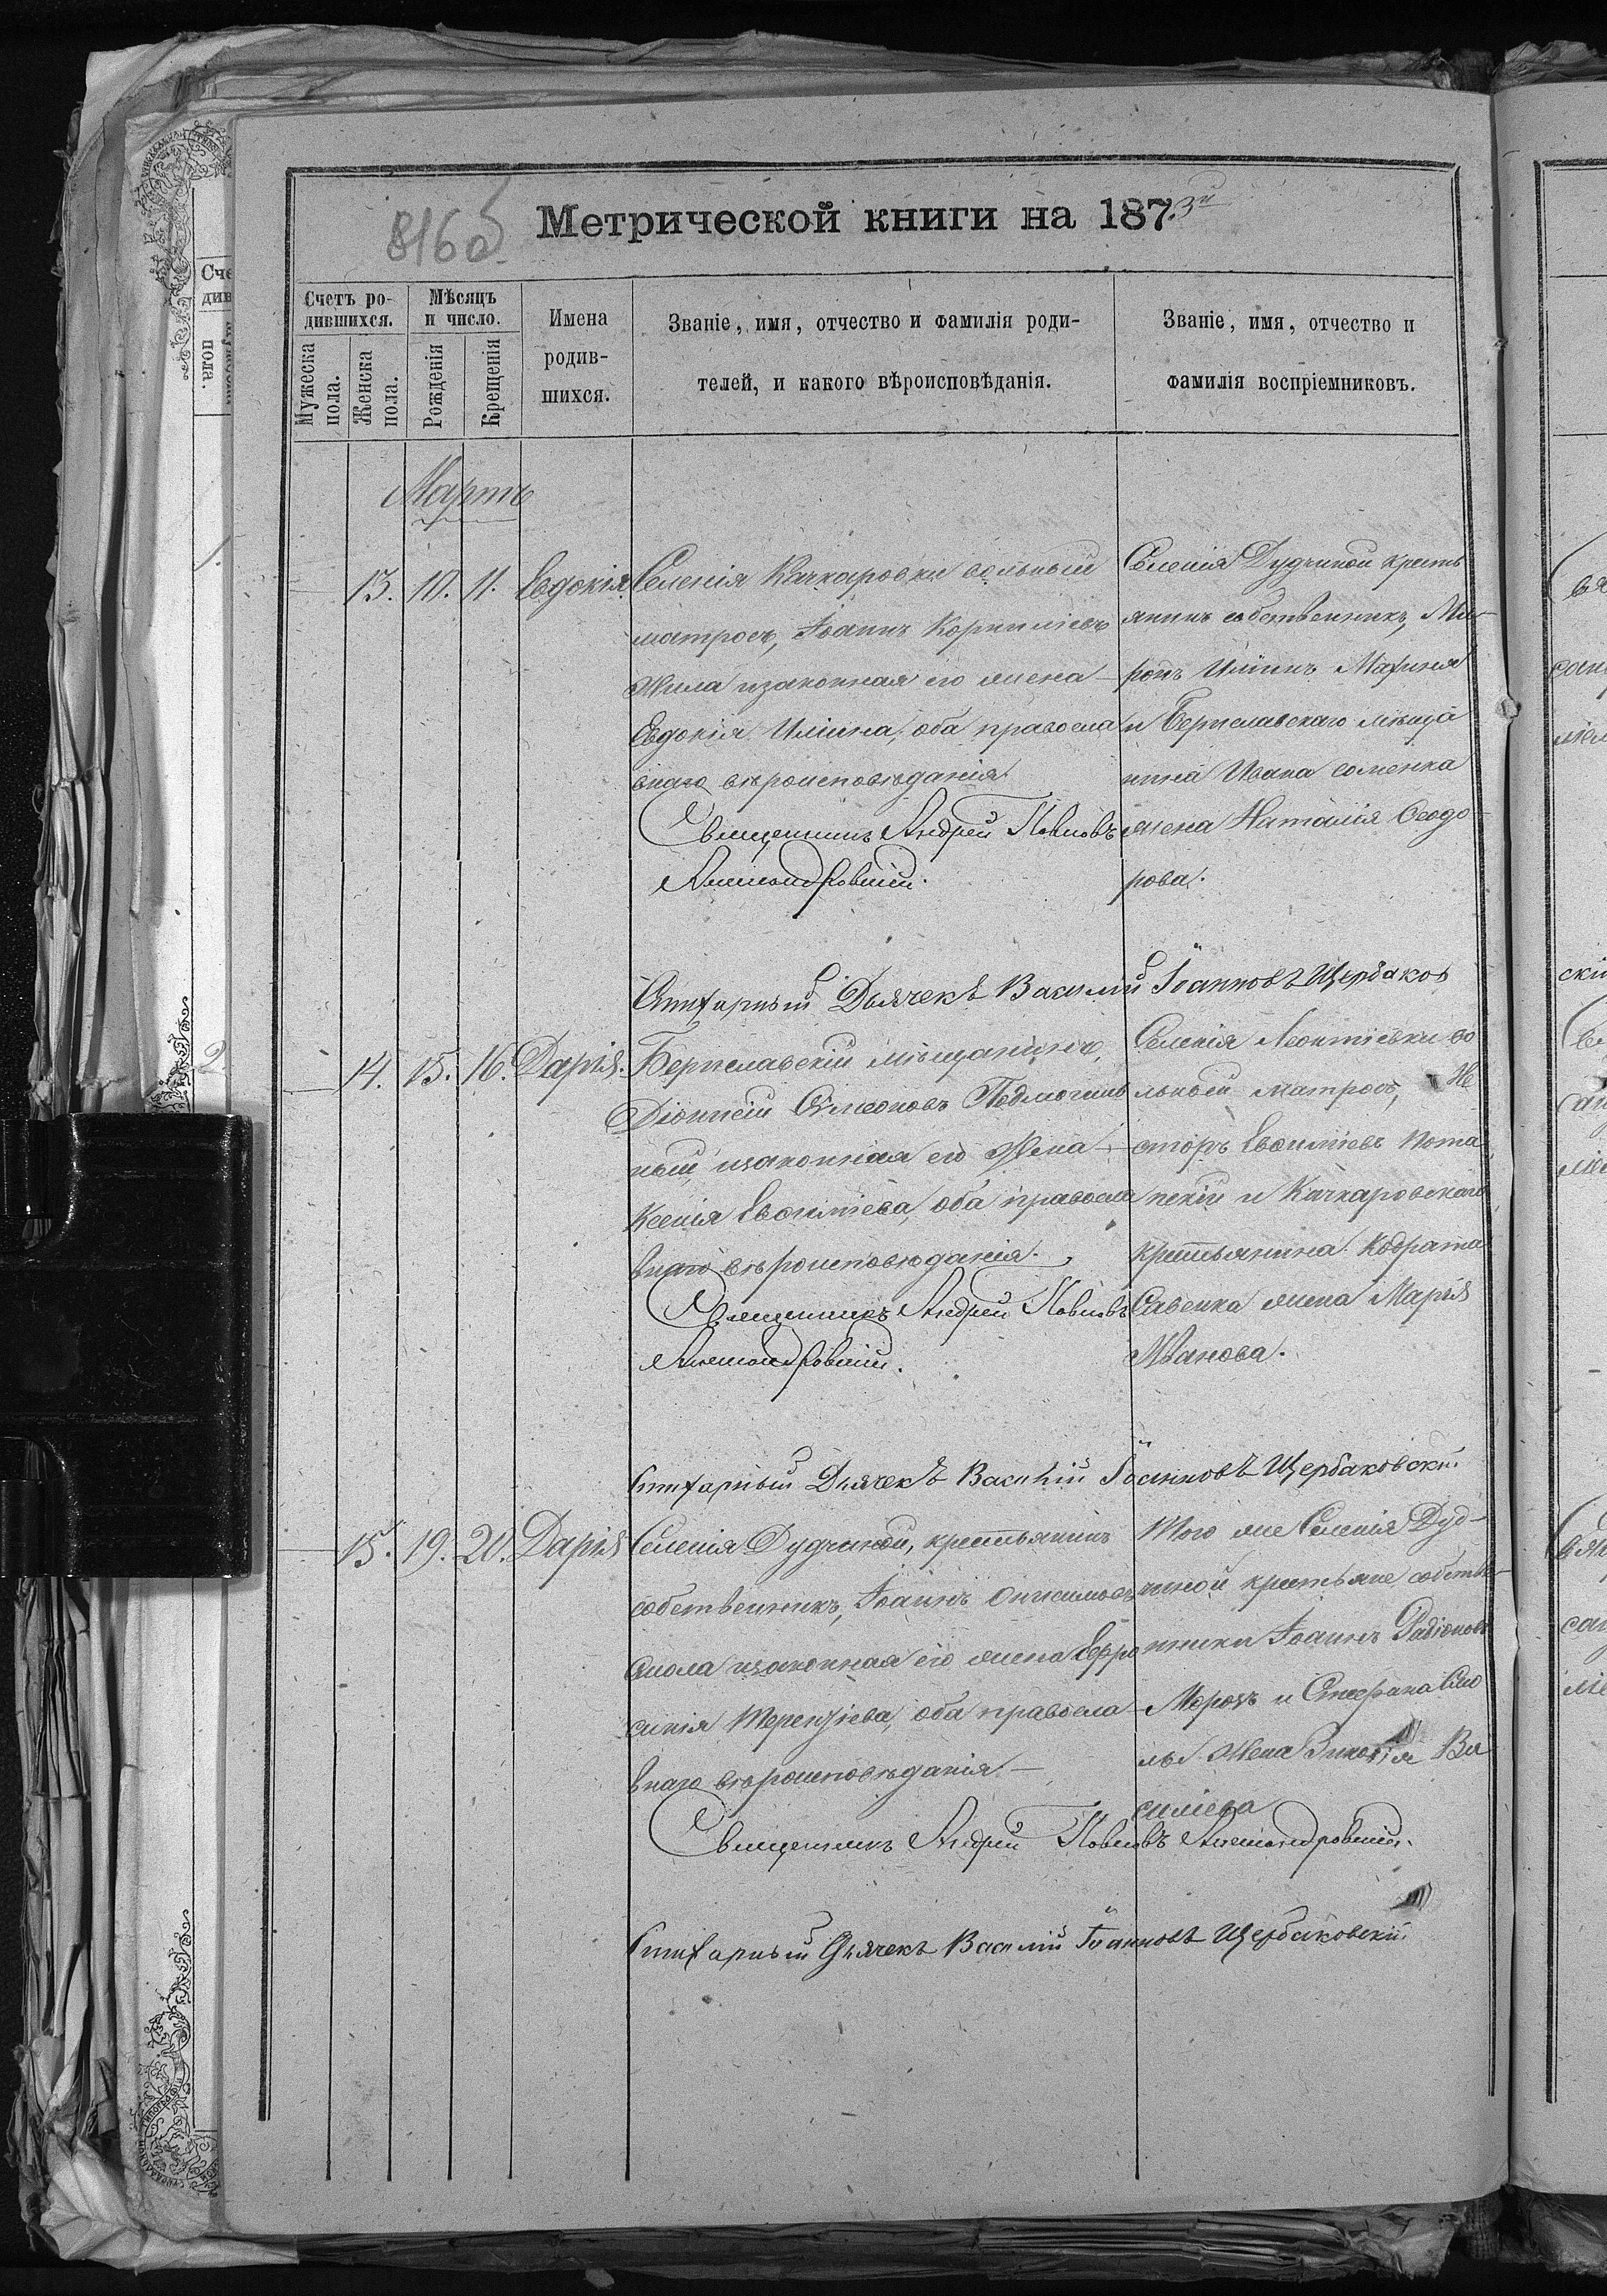 816об
Метрической книги на 187.3й
Счетъ ро-
дившихся.
Мужеска
пола.
Женска
пола.
Мѣсяцъ
и число.
Рожденія
Крещенія
Имена
родив-
шихся.
Званіе, имя, отчество и фамилія роди-
телей, и какого вѣроисповѣданія.
Званіе, имя, отчество и
фамилія воспріемниковъ.
Мартъ
13. 10. 11. Евдокія.
Селенія Качкаровки вольный
матросъ, Іоаннъ Корниліевъ
Жила изаконная его жена
Евдокія Иліина, оба правосла
внаго вѣроисповѣданія.
Священникъ Андрей Павловъ
Александровскій.
Селенія Дудчиной кресть
янинъ собственникъ, Ми-
ронъ Иліинъ
и Бериславскаго мѣща
нина Ивана Соменка
жена Наталія Ѳеодо
рова.
Штатный Дьячекъ Василій Іоанновъ Щербаков
14. 15. 16. Дарія.
Бериславскій мѣщанинъ,
Діонисій Сѵмеоновъ
ный, изаконная его Жена
Ксенія Евѳиміева, оба правосла
внаго вѣроисповѣданія.
Священникъ Андрей Павловъ
Александровскій.
Селенія Леонтіевки во
льный матросъ, Не
сторъ Евѳиміевъ Пота
пскій и Качкаровскаго
крестьянина Кодрата
Савенка жена Марія
Иванова.
Штатный Дьячекъ Василій Іоанновъ Щербаковскій.
15. 19. 20. Дарія
Селенія Дудчиной, крестьянинъ
собственникъ, Іоаннъ Онисимовъ
Смола изаконная его жена Евфро
синія Терентіева, оба правосла
внаго вѣроисповѣданія
Того же Селенія Дуд-
чиной крестьяне, собстве-
нники Іоаннъ Радіоновъ
Морозъ и Стефана Смо
лы Жена Ва
силіева
Священникъ Андрей Павловъ Александровскій.
Штатный Дьячекъ Василій Іоанновъ Щербаковскій.